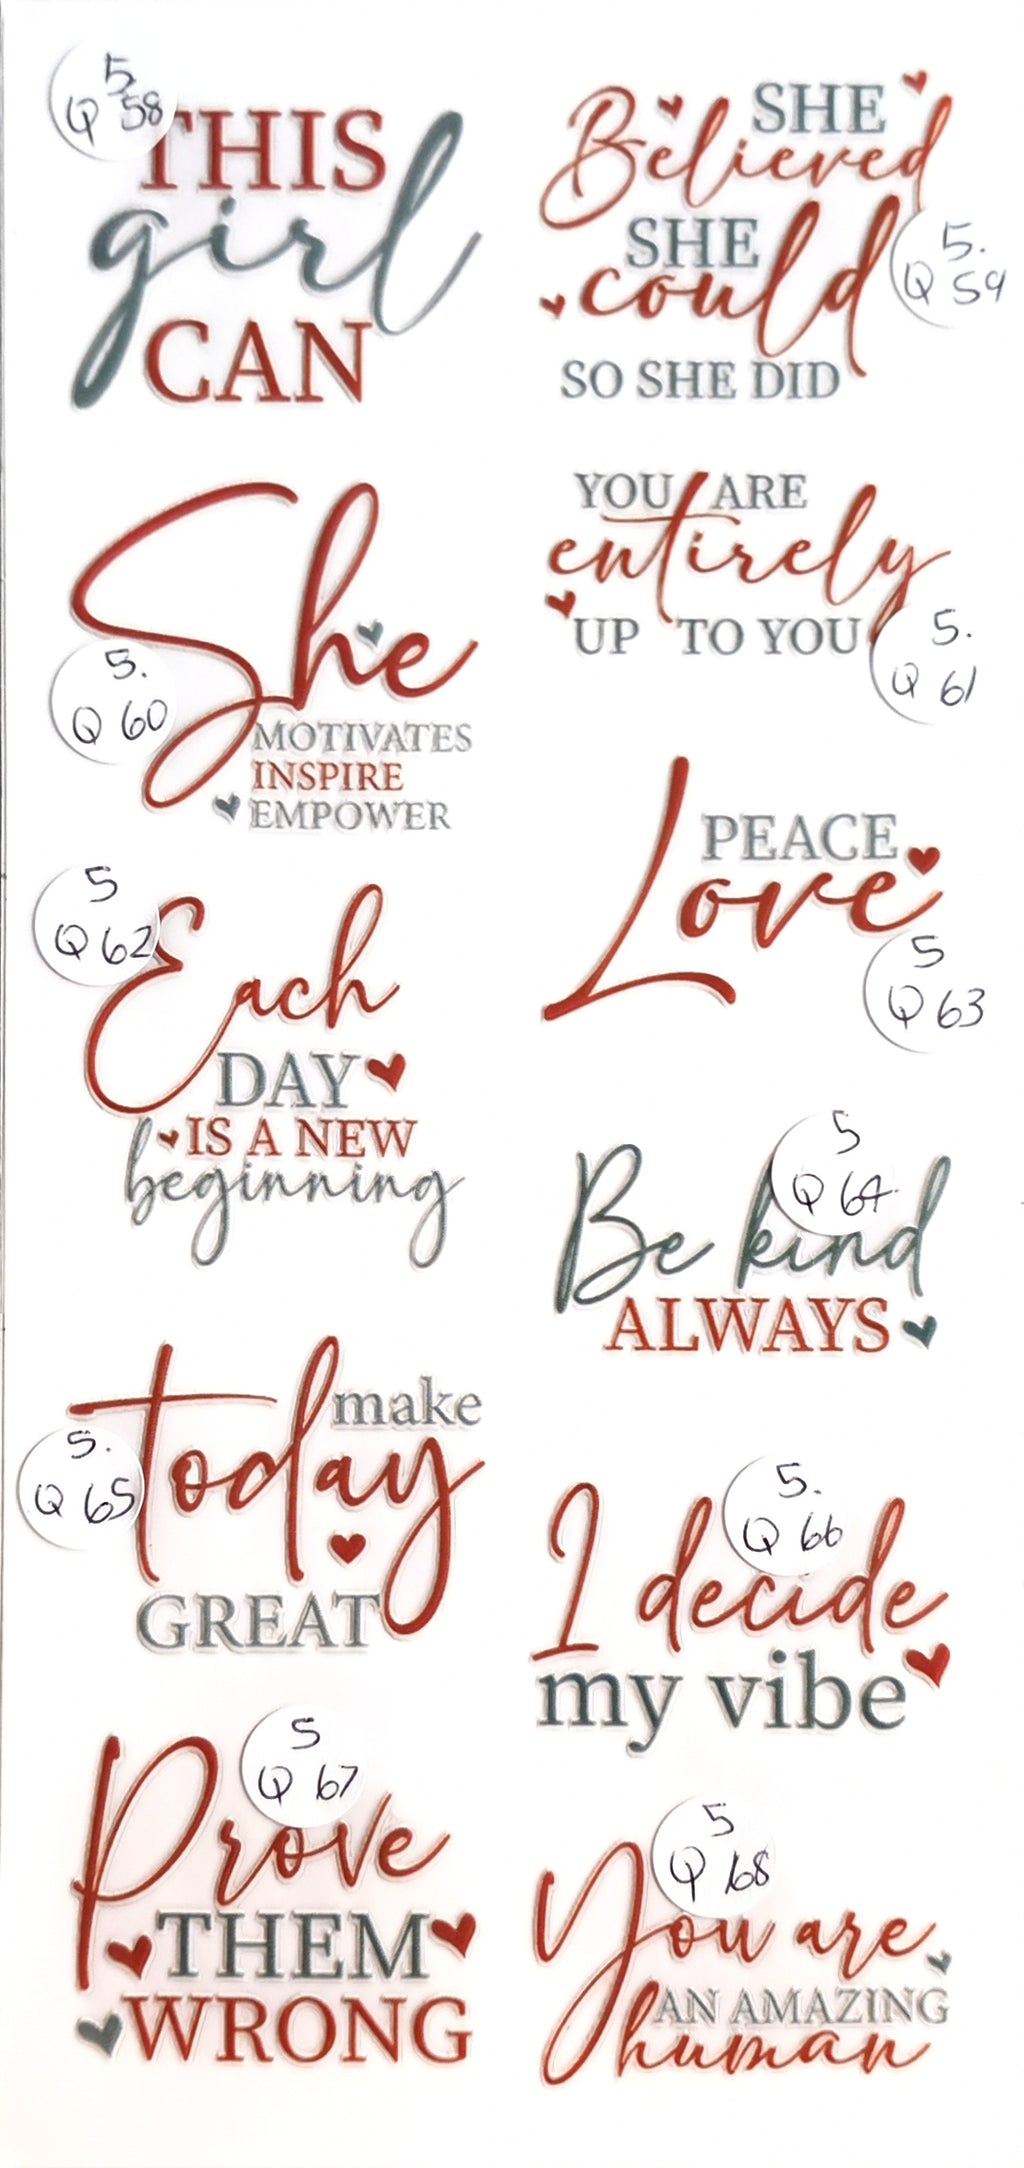 5.
Q 58
THIS
girl
CAN
SHE
Believed
SHE
could
SO SHE DID
5.
Q 59
She
MOTIVATES
INSPIRE
EMPOWER
5.
Q 60
YOU ARE
entirely
UP TO YOU
5.
Q 61
5
Q 62
Each
DAY
IS A NEW
beginning
PEACE
Love
5
Q 63
5
Q 64
Be kind
ALWAYS
make
today
GREAT
5.
Q 65
5.
Q 66
I decide
my vibe
5
Q 67
Prove
THEM
WRONG
5
Q 68
You are
AN AMAZING
human